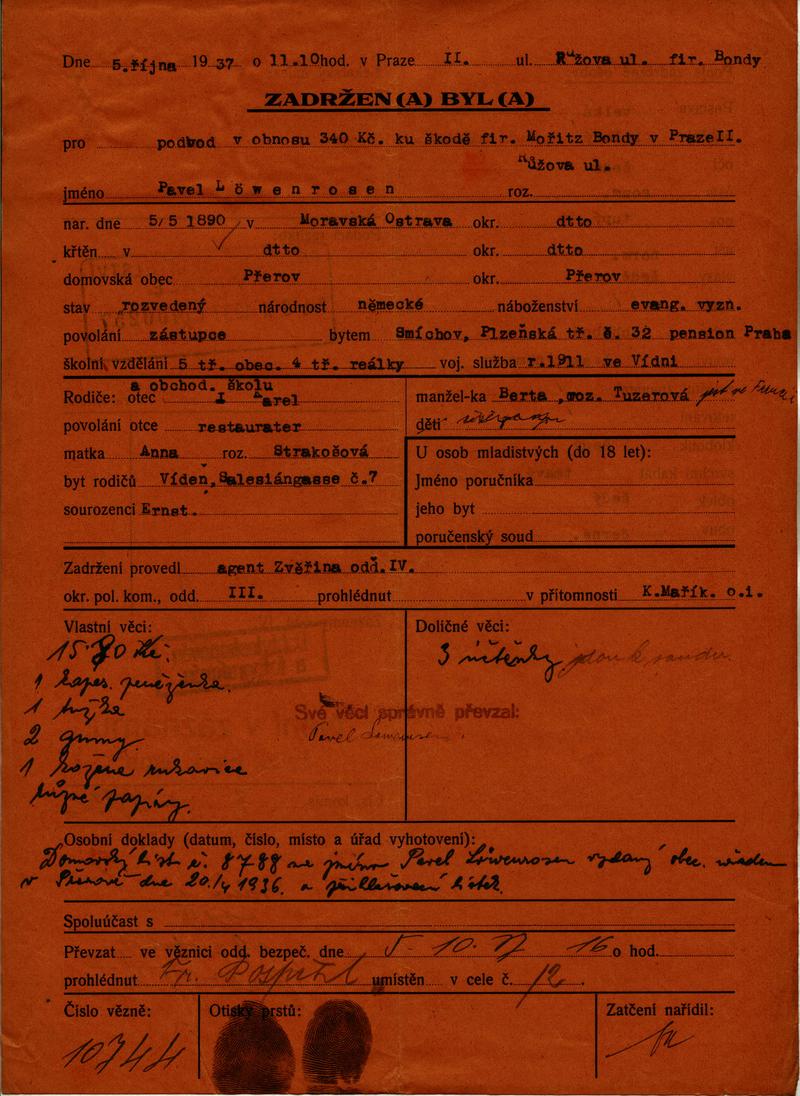 Dne 5.října 1937 o 11.10 hod. v Praze II. ul. Růžova ul. fir. Bondy
ZADRŽEN(A) BYL(A)
pro podvod v obnosu 340 Kč. ku škodě fir. Mořitz Bondy v Praze II.
Růžova ul.
jméno Pavel Löwenrosen roz.
nar. dne 5/5 1890 v Moravská Ostrava okr. dtto
křtěn v dtto okr. dtto
domovská obec Přerov okr. Přerov
stav rozvedený národnost německé náboženství evang. vyzn.
povolání zástupce bytem Smíchov, Plzeňská tř. č. 32 pension Praha
školní vzdělání 5 tř. obec. 4 tř. reálky voj. služba r.1911 ve Vídni
a obchod. školu
Rodiče: otec Karel manžel-ka Berta, roz. Tuzerová
povolání otce restaurater děti
matka Anna roz. Strakošová U osob mladistvých (do 18 let):
byt rodičů Vídeň, Salesiángasse č.7 Jméno poručníka
sourozenci Ernst. jeho byt
poručenský soud
Zadržení provedl agent Zvěřina odd. IV.
okr. pol. kom., odd. III. prohlédnut v přítomnosti K.Mařík. o.i.
Vlastní věci: Doličné věci:
Kč. 3 účtenky jdou k soudu.
1 kapes. peněženka.
1 tužka
Své věci správně převzal:
2 gumy. Pavel Löwenrosen
1 kožené rukavice
různé papíry.
Osobní doklady (datum, číslo, místo a úřad vyhotovení):
Domovský list č. 8788 na jméno Pavel Löwenrosen vydaný obec. úřadem
v Přerově dne 20/4 1936. a přihlašovací lístek.
Spoluúčast s
Převzat ve věznici odd. bezpeč. dne 5-10.37 16 o hod.
prohlédnut Fr. Pospíšil umístěn v cele č. 12.
Číslo vězně: Otisky prstů: Zatčení nařídil:
10744